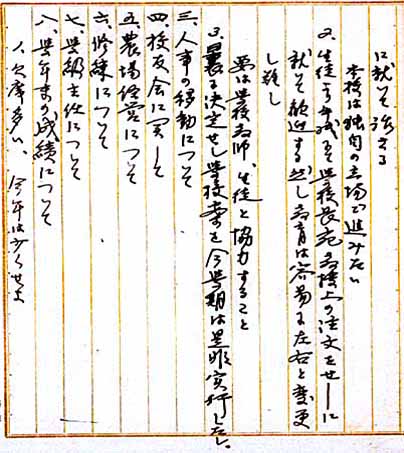 に就いて話さる
本校は独自の立場で進みたい
2、生徒より手紙にて学校長宛各種上の注文をせしに
就いて歓迎する然し教育は容易に左右と変更
し難し
要は学校、教師、生徒と協力すること
3、曩に決定せし学校案を今学期は是非実行したし。
三、人事の移動について
四、校友会に関して
五、農場経営について
六、修練について
七、学級主任について
八、学年末の成績について
1、欠席多い、今年は少くせよ